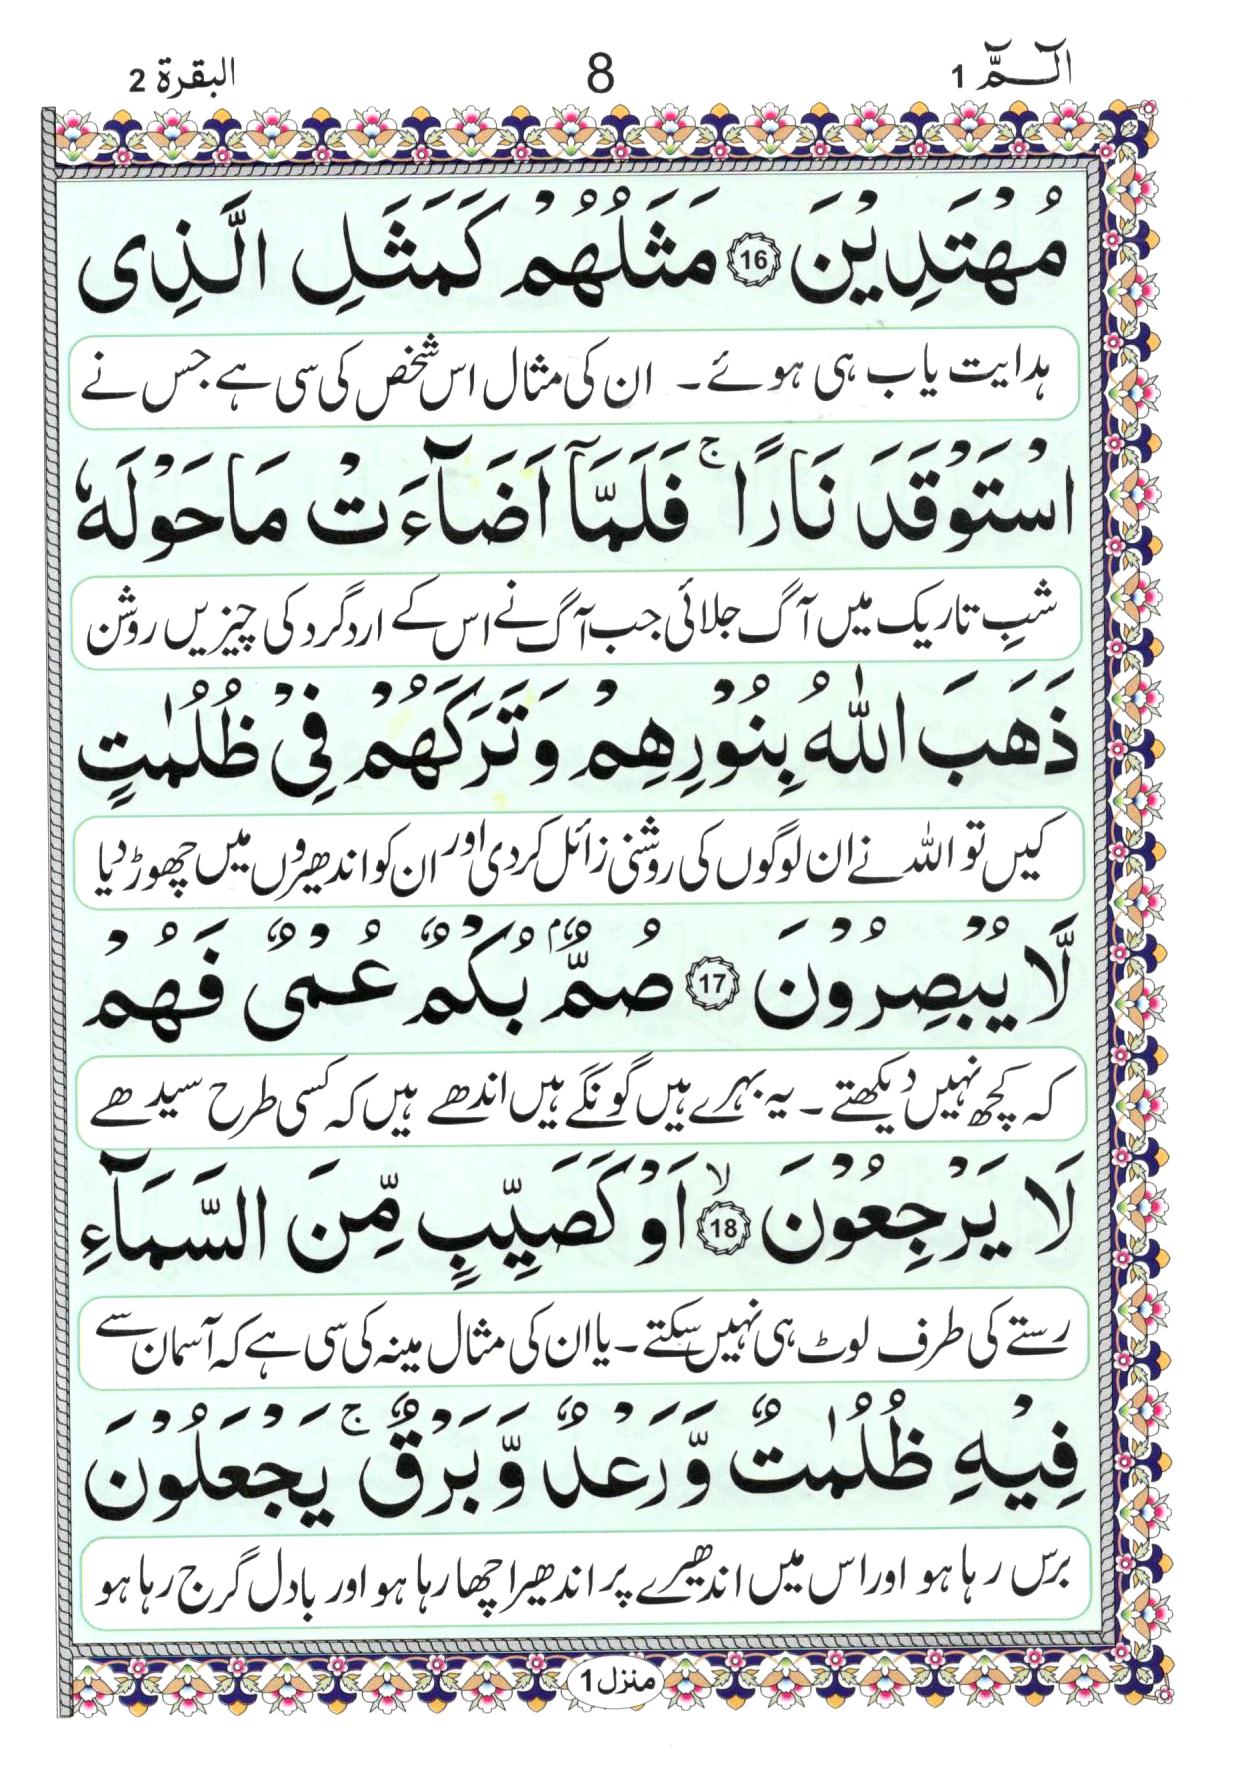 الٓـمّٓ 1 8 البقرة 2
مُهْتَدِيْنَ 16 مَثَلُهُمْ كَمَثَلِ الَّذِى
ہدایت یاب ہی ہوئے۔ ان کی مثال اس شخص کی سی ہے جس نے
اسْتَوْقَدَ نَارًا ۚ فَلَمَّاۤ اَضَآءَتْ مَا حَوْلَهٗ
شبِ تاریک میں آگ جلائی جب آگ نے اس کے اردگرد کی چیزیں روشن
ذَهَبَ اللّٰهُ بِنُوْرِهِمْ وَتَرَكَهُمْ فِىْ ظُلُمٰتٍ
کیں تو اللہ نے ان لوگوں کی روشنی زائل کر دی اور ان کو اندھیروں میں چھوڑ دیا
لَّا يُبْصِرُوْنَ 17 صُمٌّۢ بُكْمٌ عُمْىٌ فَهُمْ
کہ کچھ نہیں دیکھتے ۔ یہ بہرے ہیں گونگے ہیں اندھے ہیں کہ کسی طرح سیدھے
لَا يَرْجِعُوْنَ 18 ۙ اَوْ كَصَيِّبٍ مِّنَ السَّمَآءِ
رستے کی طرف لوٹ ہی نہیں سکتے ۔ یا ان کی مثال مینہ کی سی ہے کہ آسمان سے
فِيْهِ ظُلُمٰتٌ وَّرَعْدٌ وَّبَرْقٌ ۚ يَجْعَلُوْنَ
برس رہا ہو اور اس میں اندھیرے پر اندھیرا چھا رہا ہو اور بادل گرج رہا ہو
منزل 1